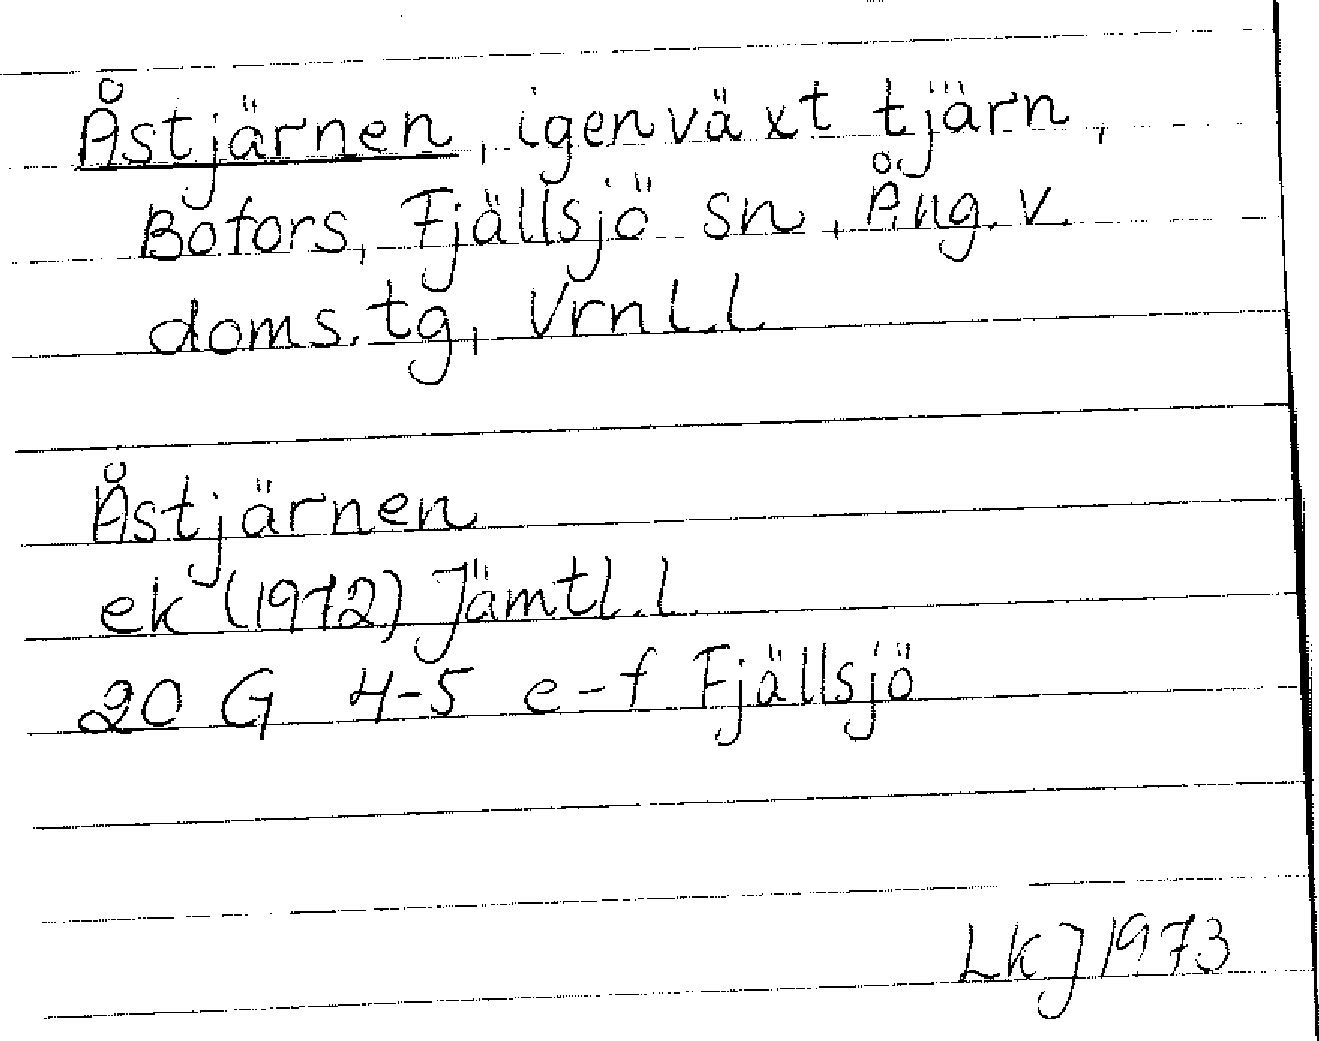 Åstjärnen, igenväxt tjärn,
Bofors, Fjällsjö sn, Ång. v.
doms. tg, Vrnl. l
Åstjärnen
ek (1972) Jämtl. l.
20 G 4-5 e-f Fjällsjö
LKJ 1973